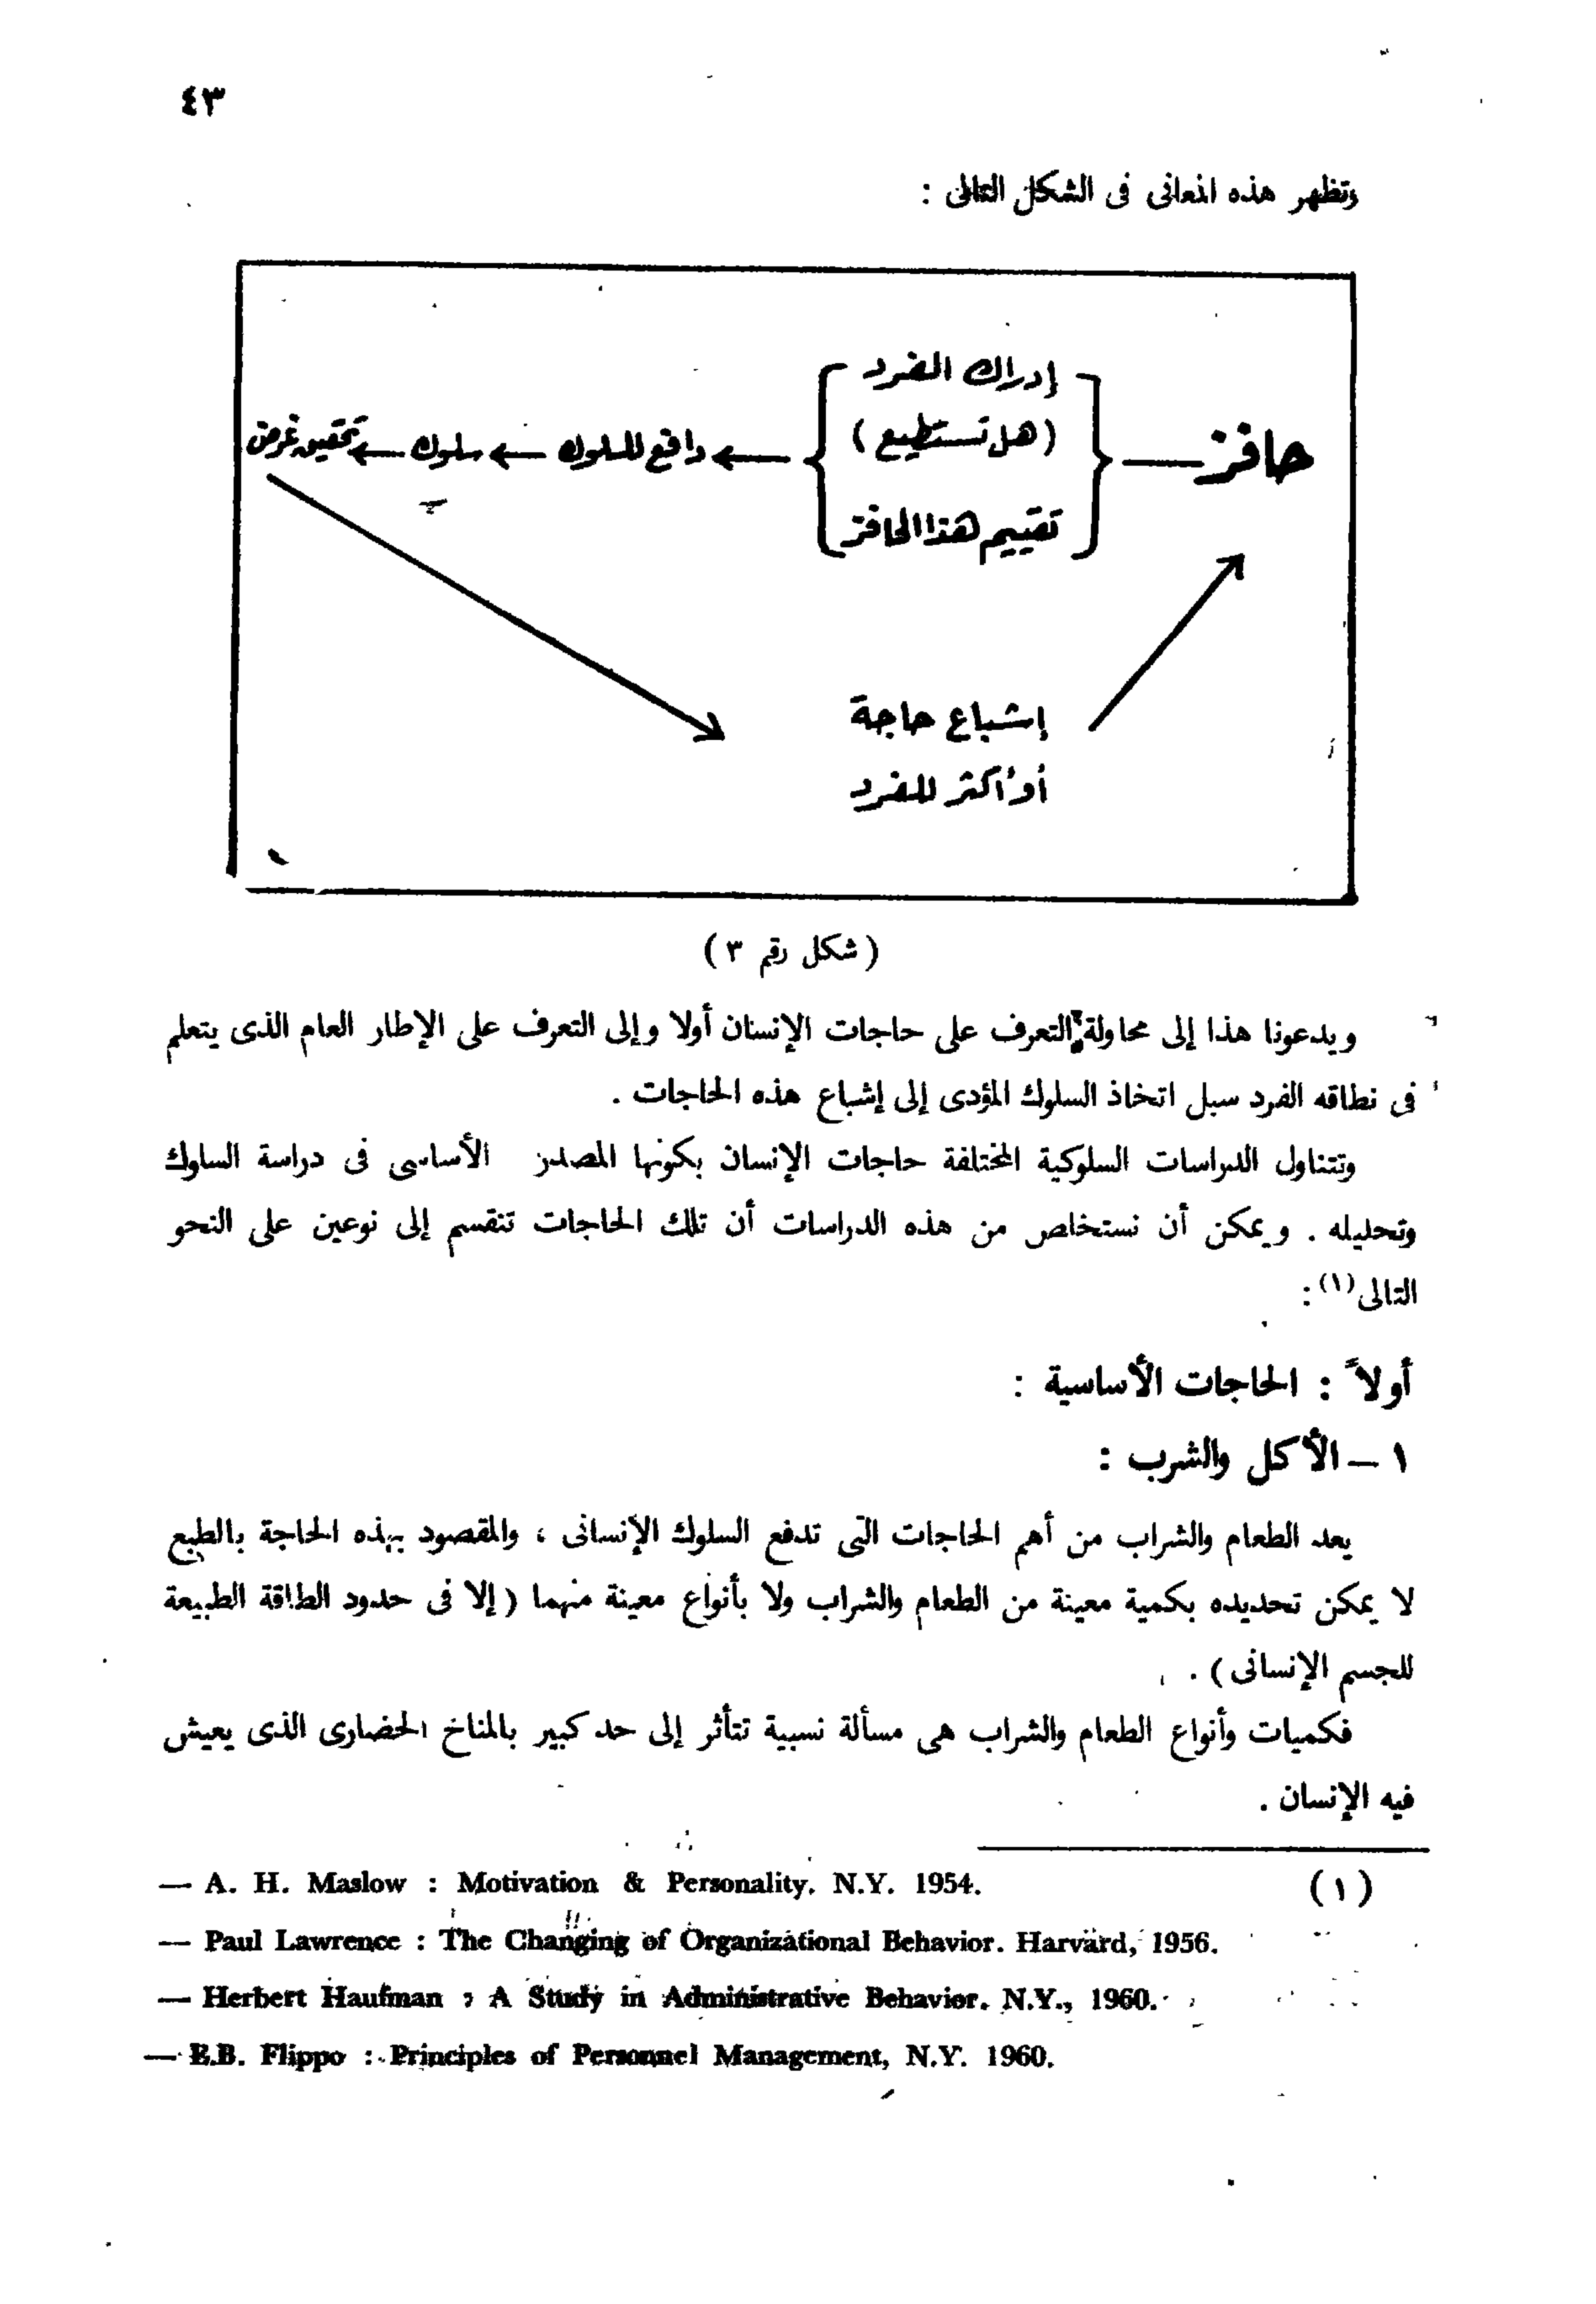 ٤٣
وتظهر هذه المعانى فى الشكل التالى :
حافز
إدراك الفرد
(هل تستطيع)
تقييم هذا الحافز
دافع للسلوك
سلوك
تحقيق غرض
إشباع حاجة
أو أكثر للفرد
( شكل رقم ٣ )
ويدعونا هذا إلى محاولة التعرف على حاجات الإنسان أولا وإلى التعرف على الإطار العام الذى يتعلم
فى نطاقه الفرد سبل اتخاذ السلوك المؤدى إلى إشباع هذه الحاجات .
وتتناول الدراسات السلوكية المختلفة حاجات الإنسان بكونها المصدر الأساسى فى دراسة السلوك
وتحليله . ويمكن أن نستخلص من هذه الدراسات أن تلك الحاجات تنقسم إلى نوعين على النحو
التالى(١) :
أولاً : الحاجات الأساسية :
١ – الأكل والشرب :
يعد الطعام والشراب من أهم الحاجات التى تدفع السلوك الإنسانى ، والمقصود بهذه الحاجة بالطبع
لا يمكن تحديده بكمية معينة من الطعام والشراب ولا بأنواع معينة منهما ( إلا فى حدود الطاقة الطبيعة
للجسم الإنسانى ) .
فكميات وأنواع الطعام والشراب هى مسألة نسبية تتأثر إلى حد كبير بالمناخ الحضارى الذى يعيش
فيه الإنسان .
(١) — A. H. Maslow : Motivation & Personality. N.Y. 1954.
— Paul Lawrence : The Changing of Organizational Behavior. Harvard, 1956.
— Herbert Haufman : A Study in Administrative Behavior. N.Y., 1960.
— E.B. Flippo : Principles of Personnel Management, N.Y. 1960.